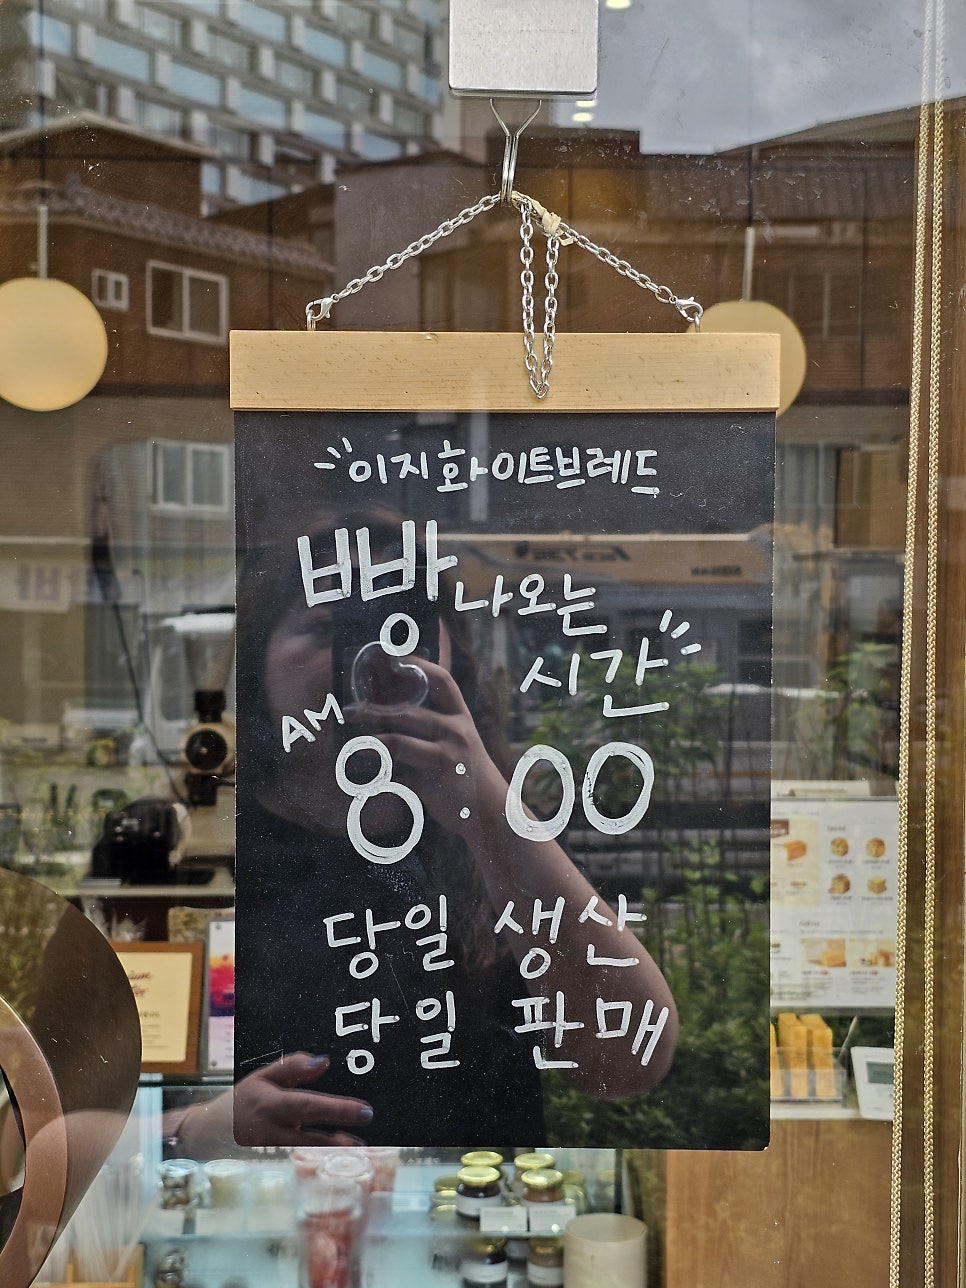 이지화이트브레드
빵나오는
시간
AM
8:00
당일 생산
당일 판매